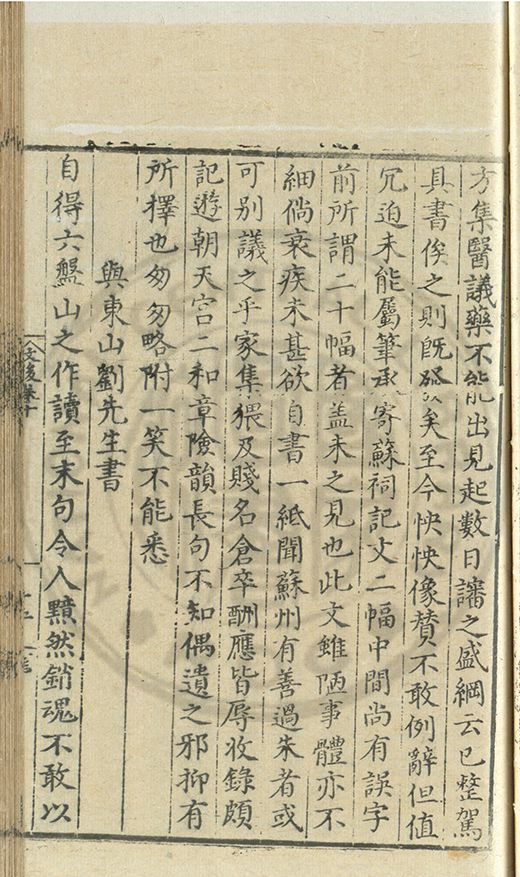 方集醫議藥不能出見起數日諳之盛綱云已整駕
具書俟之則旣發矣至今怏怏像賛不敢例辭但值
冗迫未能屬筆承寄蘇祠記文二幅中間尚有誤字
前所謂二十幅者盖未之見也此文雖陋事體亦不
細倘衰疾未甚欲自書一紙聞蘇州有善過朱者或
可別議之乎家集猥及賤名倉卒酬應皆辱收錄頗
記遊朝天宫二和章險韻長句不知偶遺之邪抑有
所擇也匆匆略附一笑不能悉
與東山劉先生書
自得六盤山之作讀至末句令人黯然銷魂不敢以